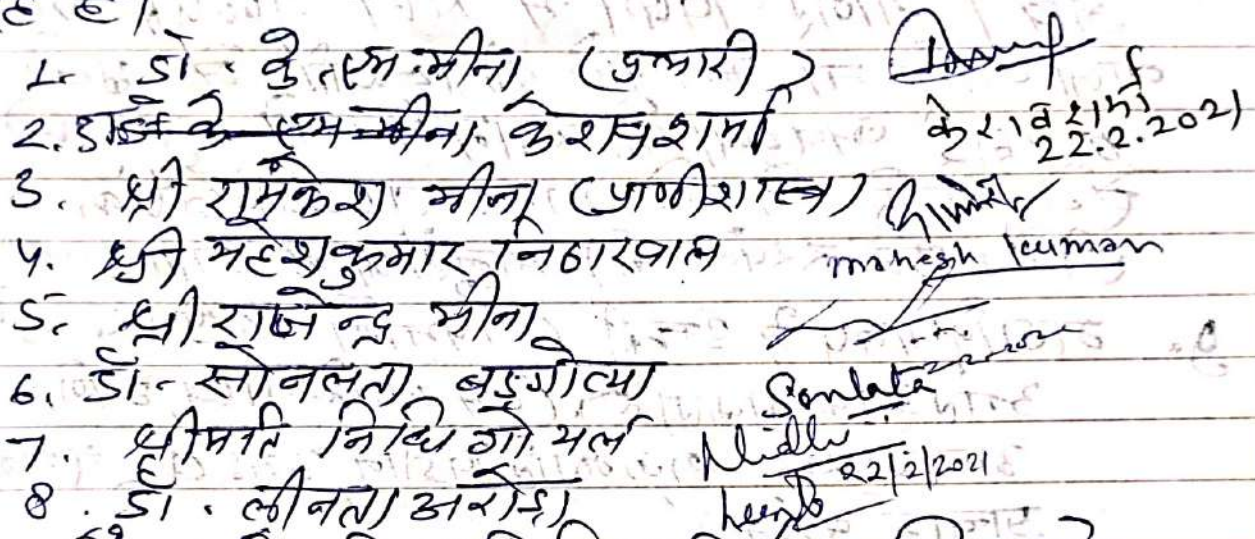 1. डॉ. के. एम. मीना (प्रभारी)
2. केशव शर्मा केशव शर्मा
22.2.2021
3. श्री रामकेश मीना (प्राणीशास्त्र)
4. श्री महेशकुमार निठारवाल mahesh kumar
5. श्री राजेन्द्र मीना
6. डॉ. सोनलता बड़गोत्या Sonlata
7. श्रीमति निधि गोयल Nidhi
8. डॉ. लीनता अरोड़ा 22/2/2021